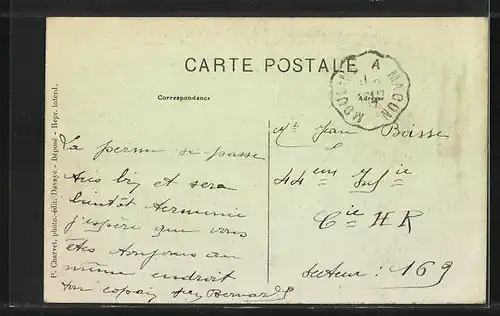 CARTE POSTALE
Correspondance
Adresse
MOULINS A MACON
La perme se passe
très bien et sera
bientôt terminée
j'espère que vous
êtes toujours au
même endroit
ton copain Bernard
Mr Jean Boisse
44eme Infie
Cie H R
secteur : 169
P. Charvet, photo-édit. Davayé - Déposé - Repr. interd.